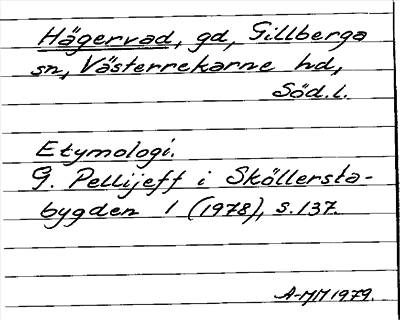 Hägervad, gd, Gillberga
sn, Västerrekarne hd,
Söd.l.
Etymologi.
G. Pellijeff i Sköllersta-
bygden 1 (1978), s. 137.
A-MM 1979.